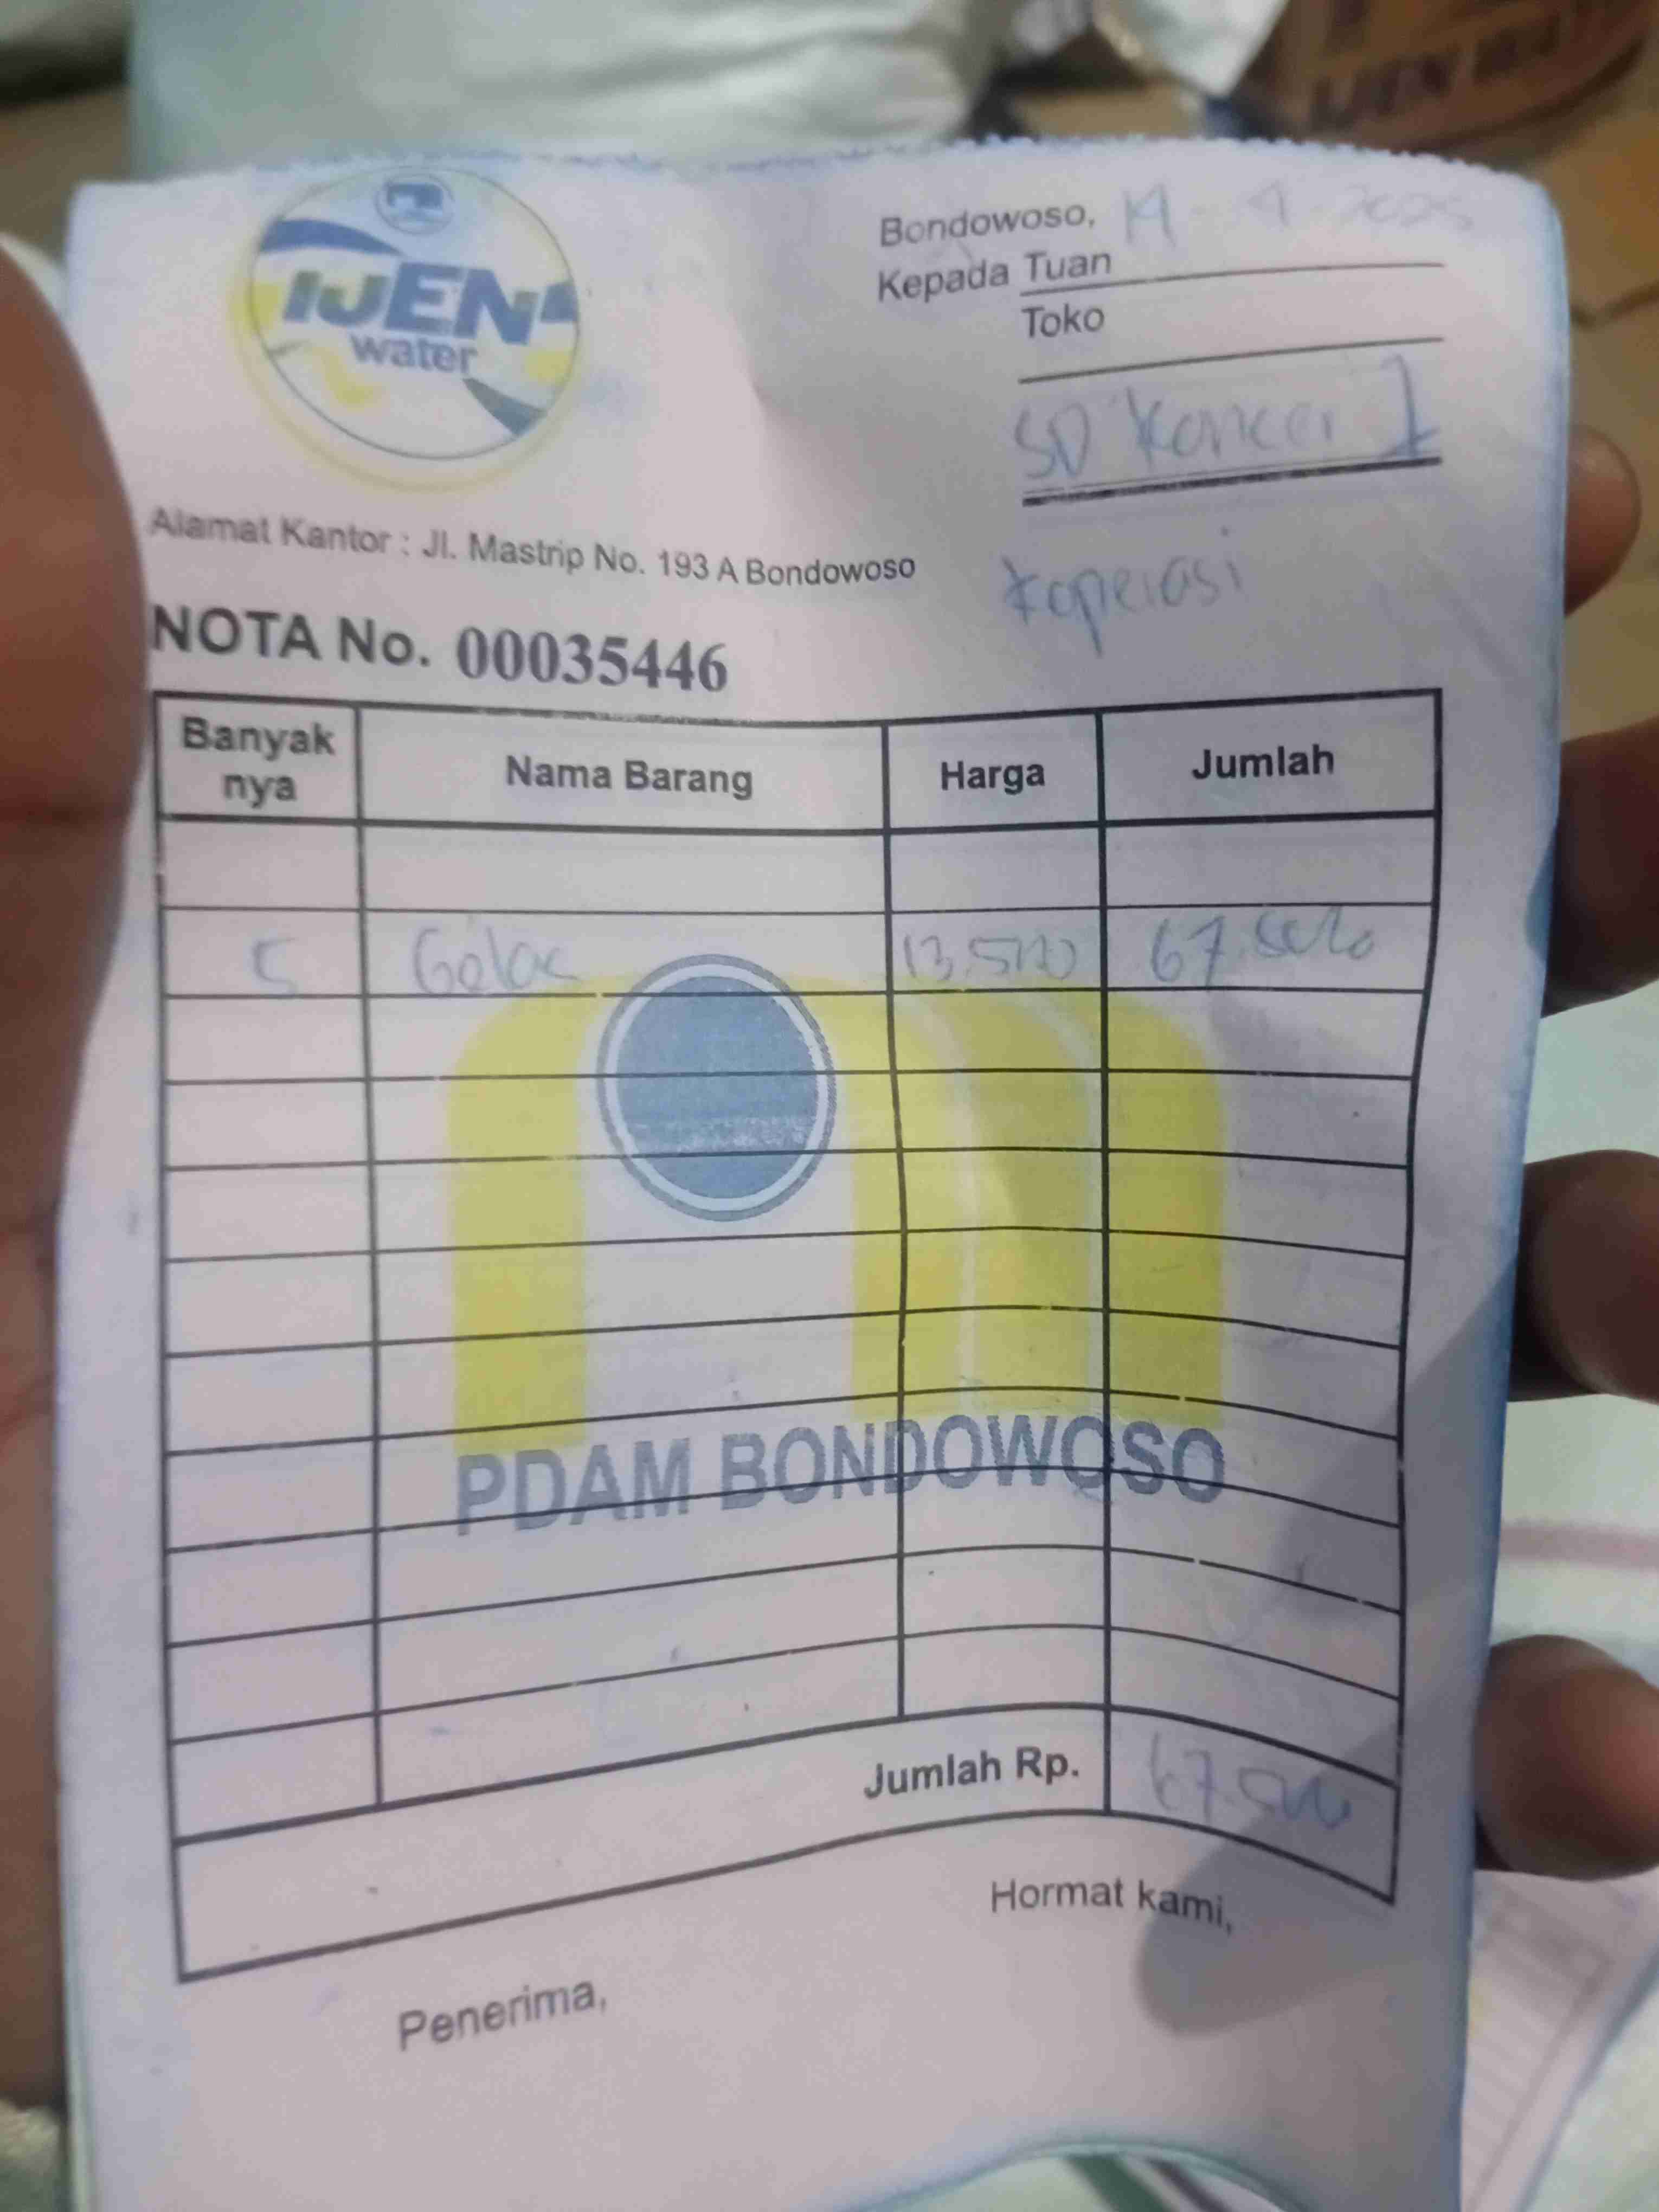 IJEN
water
Bondowoso, 14 - 4 - 2025
Kepada Tuan
Toko
SD Koncer 1
Koperasi
Alamat Kantor : Jl. Mastrip No. 193 A Bondowoso
NOTA No. 00035446
Banyak nya Nama Barang Harga Jumlah
5 Gelas 13.500 67.500
PDAM BONDOWOSO
Jumlah Rp. 67.500
Hormat kami,
Penerima,